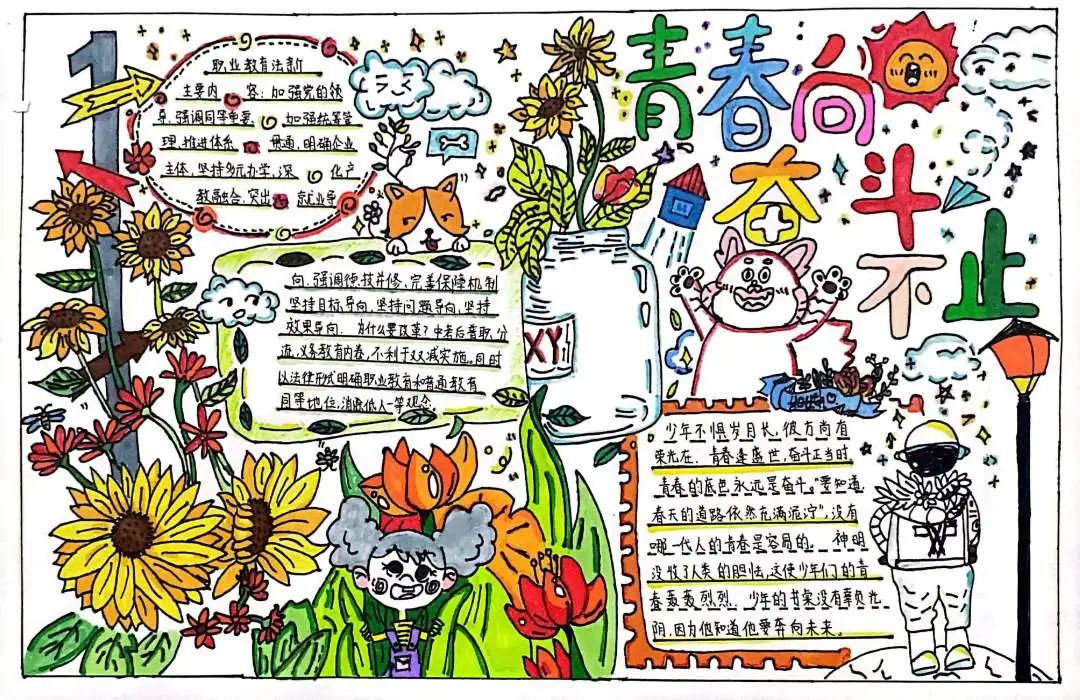 青春向
奋斗
不止
职业教育法新
主要内 容：加强党的领
导，强调同等重要 加强统筹管
理，推进体系 贯通，明确企业
主体，坚持多元办学，深 化产
教融合，突出 就业导
向，强调德技并修，完善保障机制
坚持目标导向，坚持问题导向，坚持
效果导向． 为什么要改革？中考后普职分
流，义务教育内卷，不利于双减实施。同时
以法律形式明确职业教育和普通教育
同等地位，消除低人一等观念
XY
少年不惧岁月长，彼方尚有
荣光在． 青春逢盛世，奋斗正当时
青春的底色永远是奋斗。“要知道，
春天的道路依然充满泥泞”，没有
哪一代人的青春是容易的。 神明
没收了人类的胆怯，这使少年们的青
春轰轰烈烈． 少年的书案没有辜负光
阴，因为他知道他要奔向未来。